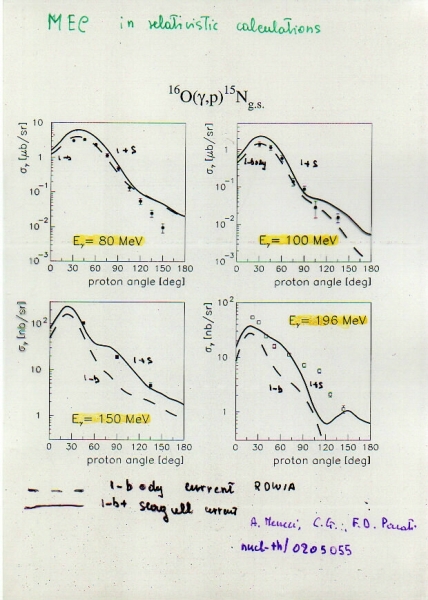 MEC in relativistic calculations
¹⁶O(γ,p)¹⁵N g.s.
σγ [μb/sr]
10
1
10⁻¹
10⁻²
10⁻³
1-b
1+S
Eγ= 80 MeV
0 30 60 90 120 150 180
proton angle [deg]
σγ [μb/sr]
10
1
10⁻¹
10⁻²
10⁻³
1-body
1+S
Eγ= 100 MeV
0 30 60 90 120 150 180
proton angle [deg]
σγ [nb/sr]
10²
10
1
1+S
1-b
Eγ= 150 MeV
0 30 60 90 120 150 180
proton angle [deg]
σγ [nb/sr]
10²
10
1
Eγ= 196 MeV
1-b
1+S
0 30 60 90 120 150 180
proton angle [deg]
1-body current RDWIA
1-b+ seagull current
A. Meucci, C.G., F.D. Pacati
nucl-th/0205055